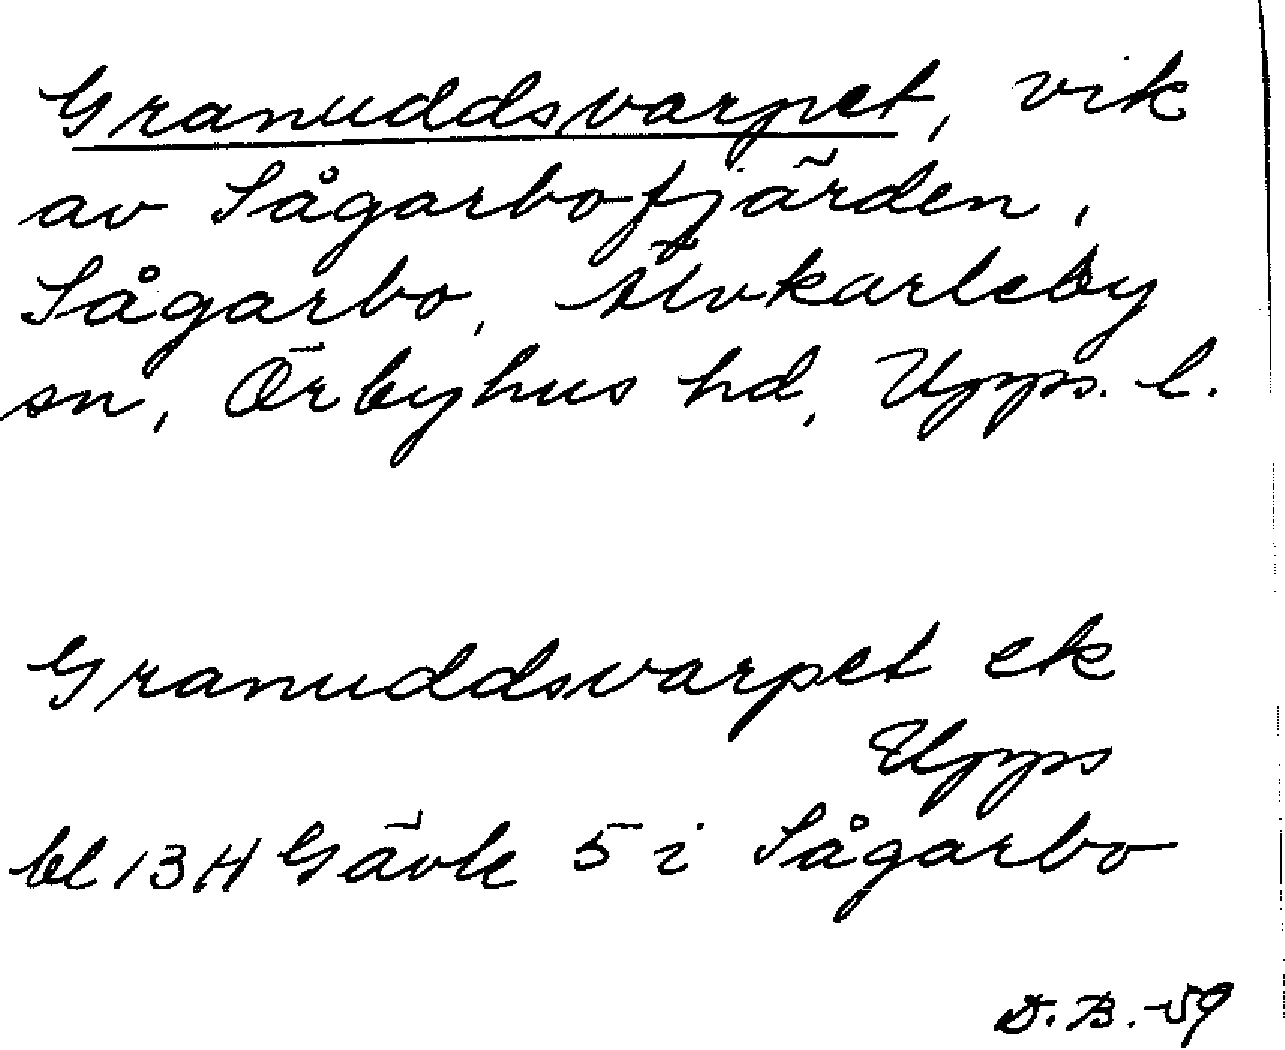 Granuddsvarpet, vik
av Sågarbofjärden,
Sågarbo, Älvkarleby
sn, Örbyhus hd, Upps. l.
Granuddsvarpet ek
Upps
bl 13 H Gävle 5 i Sågarbo
D. B. -59